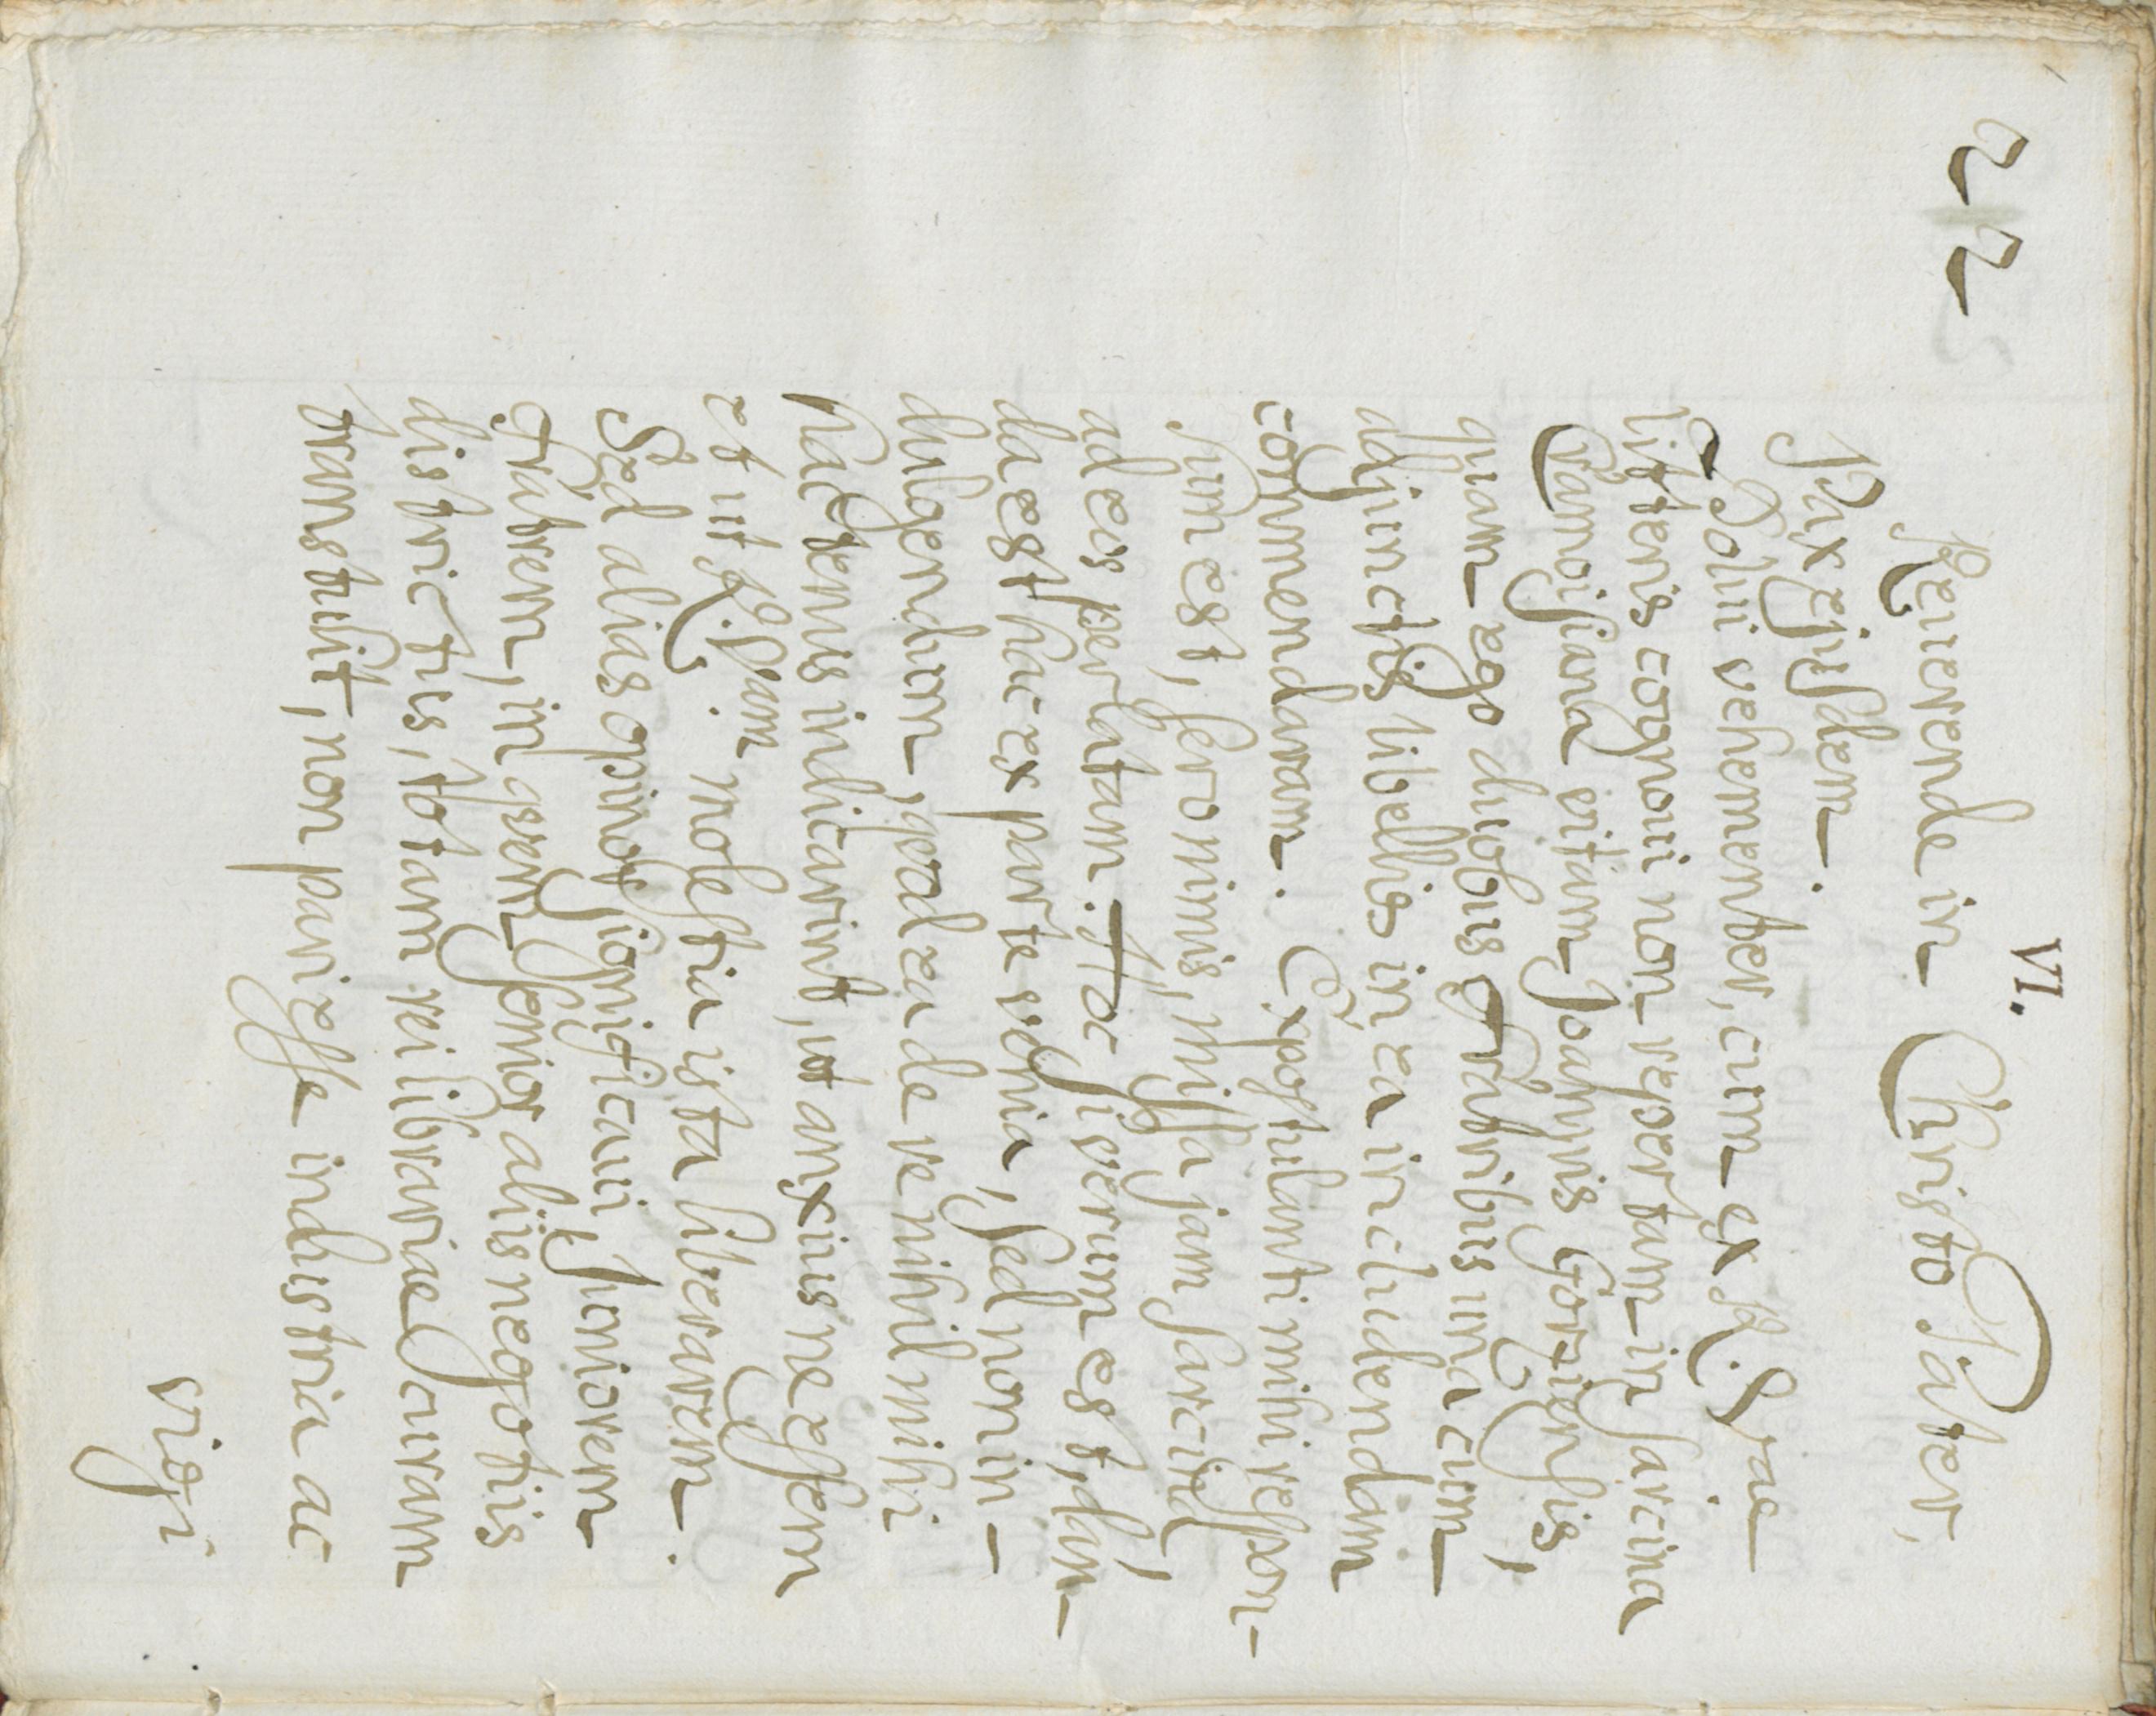 22
VI.
Reuerende in Christo Pater,
Pax ejusdem.
Dolui vehementer, cum ex R. Vrae
litteris cognoui non repertam in sarcina
Camoisiana vitam Joannis Gorziensis,
quam ego duobus Fratribus una cum
adjunctis libellis in ea includendam
commendaram. Expostulanti mihi respon-
sum est, sero nimis, missa jam sarcina,
ad eos perlatam. Hoc si verum est, dan-
da est huic ex parte venia, sed non in-
dulgendum, quod ea de re nihil mihi
hactenus indicarint, ut anxius ne essem
et ut R. Vam molestia ista liberarem.
Sed alias opinor significaui, Juniorem
Fratrem, in quem Senior aliis negotiis
districtus, totam rei librariae curam
transtulit, non pari esse industria ac
vigi